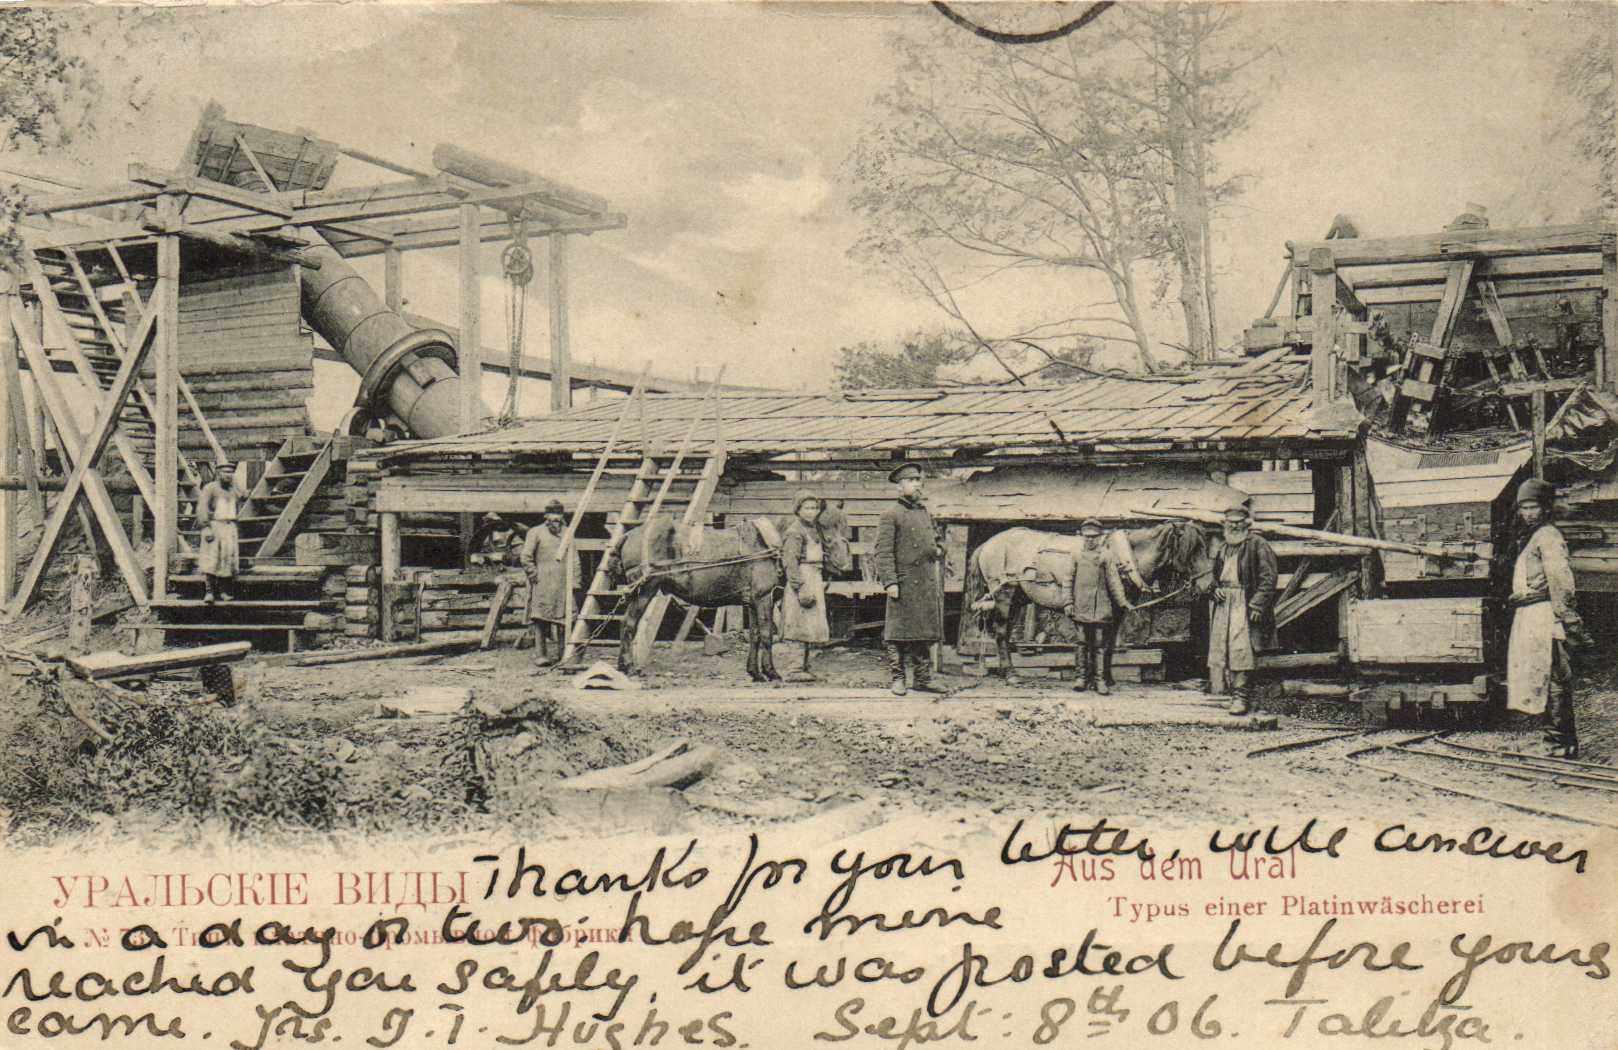 УРАЛЬСКІЕ ВИДЫ
Aus dem Ural
Typus einer Platinwäscherei
Thanks for your letter, will answer
in a day or two. hope mine
reached you safely, it was posted before yours
came. Yrs. J. T. Hughes. Sept: 8th 06. Talitza.